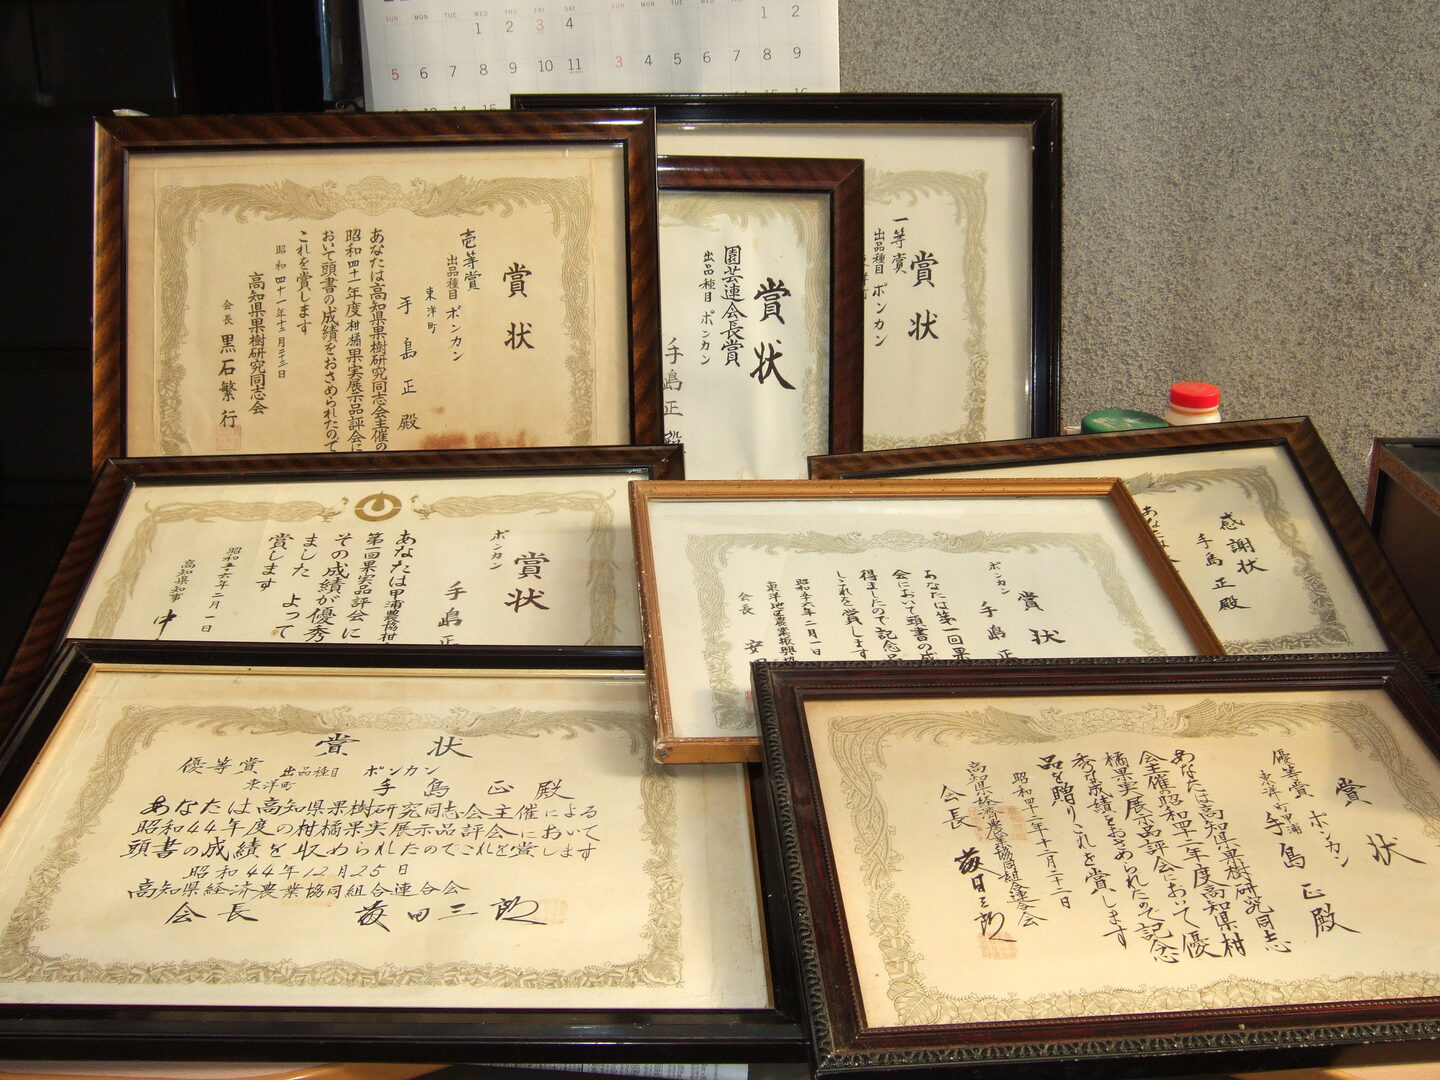 SUN MON TUE WED THU FRI SAT
1 2 3 4
5 6 7 8 9 10 11
SUN MON TUE WED THU FRI SAT
1 2
3 4 5 6 7 8 9
賞状
壱等賞
出品種目 ポンカン
東洋町
手島正殿
あなたは高知県果樹研究同志会主催の
昭和四十一年度柑橘果実展示品評会に
おいて頭書の成績をおさめられたので
これを賞します
昭和四十一年十二月二十三日
高知県果樹研究同志会
会長 黒石繁行
賞状
園芸連会長賞
出品種目 ポンカン
手島正殿
賞状
一等賞
出品種目 ポンカン
賞状
ポンカン
手島正
あなたは甲浦農協柑
第一回果実品評会に
その成績が優秀
ました よって
賞します
昭和五十六年二月一日
高知県知事 中
賞状
ポンカン
手島正
あなたは第一回果
会において頭書の成
得ましたので記念品
しこれを賞します
昭和五十六年二月一日
東洋地区農業振興協
会長 安
感謝状
手島正殿
あなたは
賞状
優等賞 出品種目 ポンカン
東洋町 手島正殿
あなたは高知県果樹研究同志会主催による
昭和44年度の柑橘果実展示品評会において
頭書の成績を収められたのでこれを賞します
昭和44年12月25日
高知県経済農業協同組合連合会
会長 藪田三郎
賞状
優等賞 ポンカン
東洋町甲浦
手島正殿
あなたは高知県果樹研究同志
会主催の昭和四十二年度高知県柑
橘果実展示品評会において優
秀な成績をおさめられたので記念
品を贈りこれを賞します
昭和四十二年十二月二十二日
高知県経済農業協同組合連合会
会長 藪田三郎